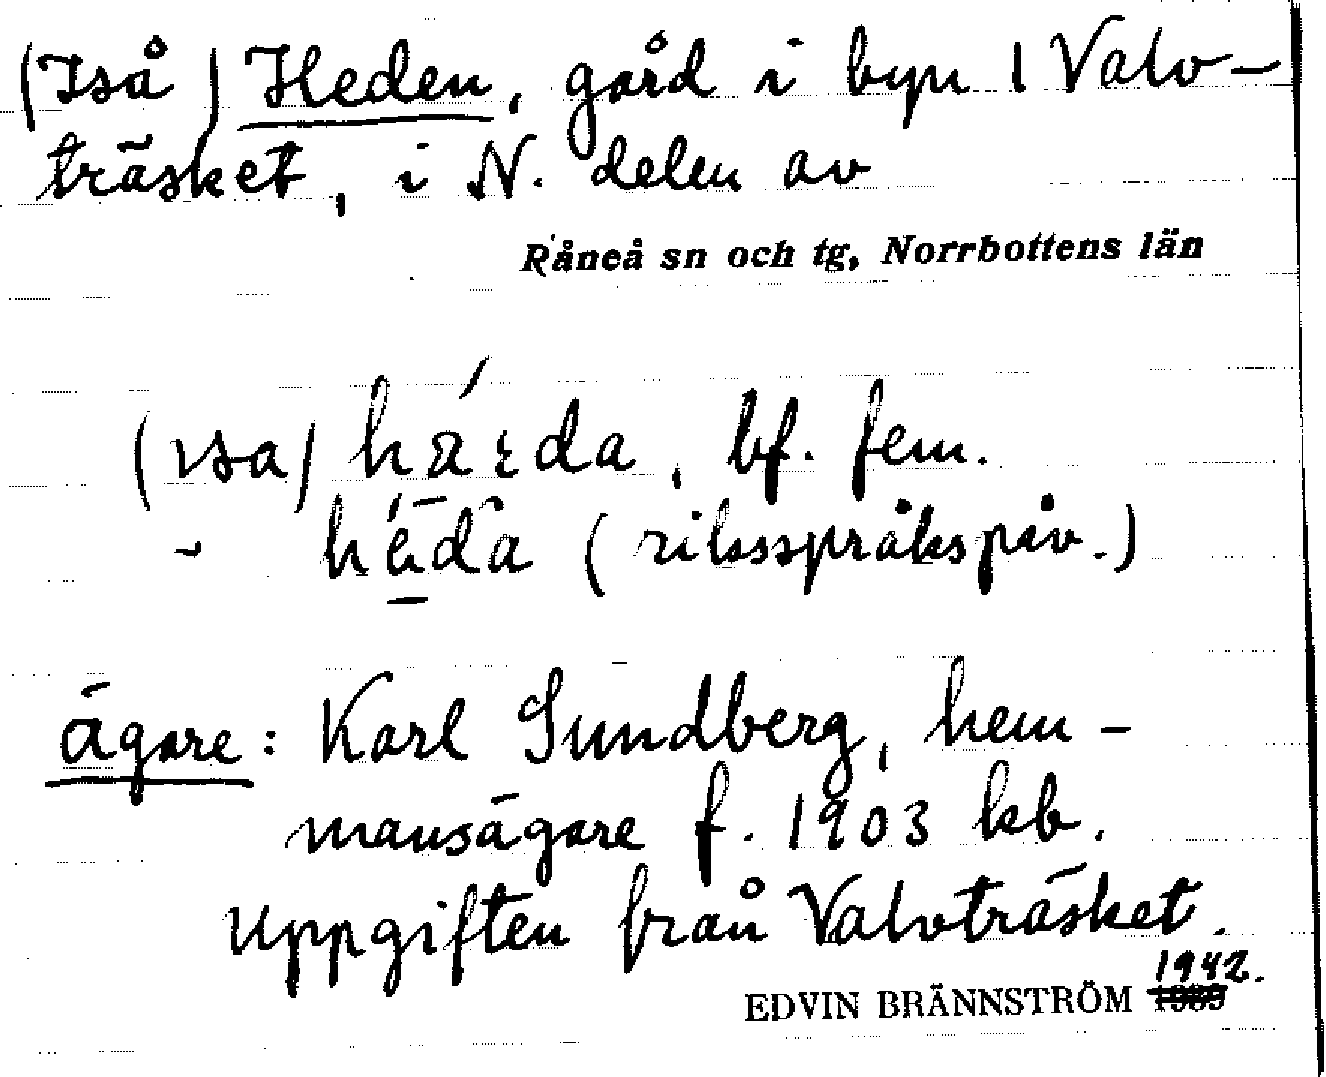 (Iså) Heden, gård i byn 1 Valv-
träsket, i N. delen av
Råneå sn och tg, Norrbottens län
(ısa) há̄ɛda, bf. fem.
- hēda (riksspråkspåv.)
ägare: Karl Sundberg, hem-
mansägare f. 1903 kb.
Uppgiften från Valvträsket.
1942.
EDVIN BRÄNNSTRÖM 1939